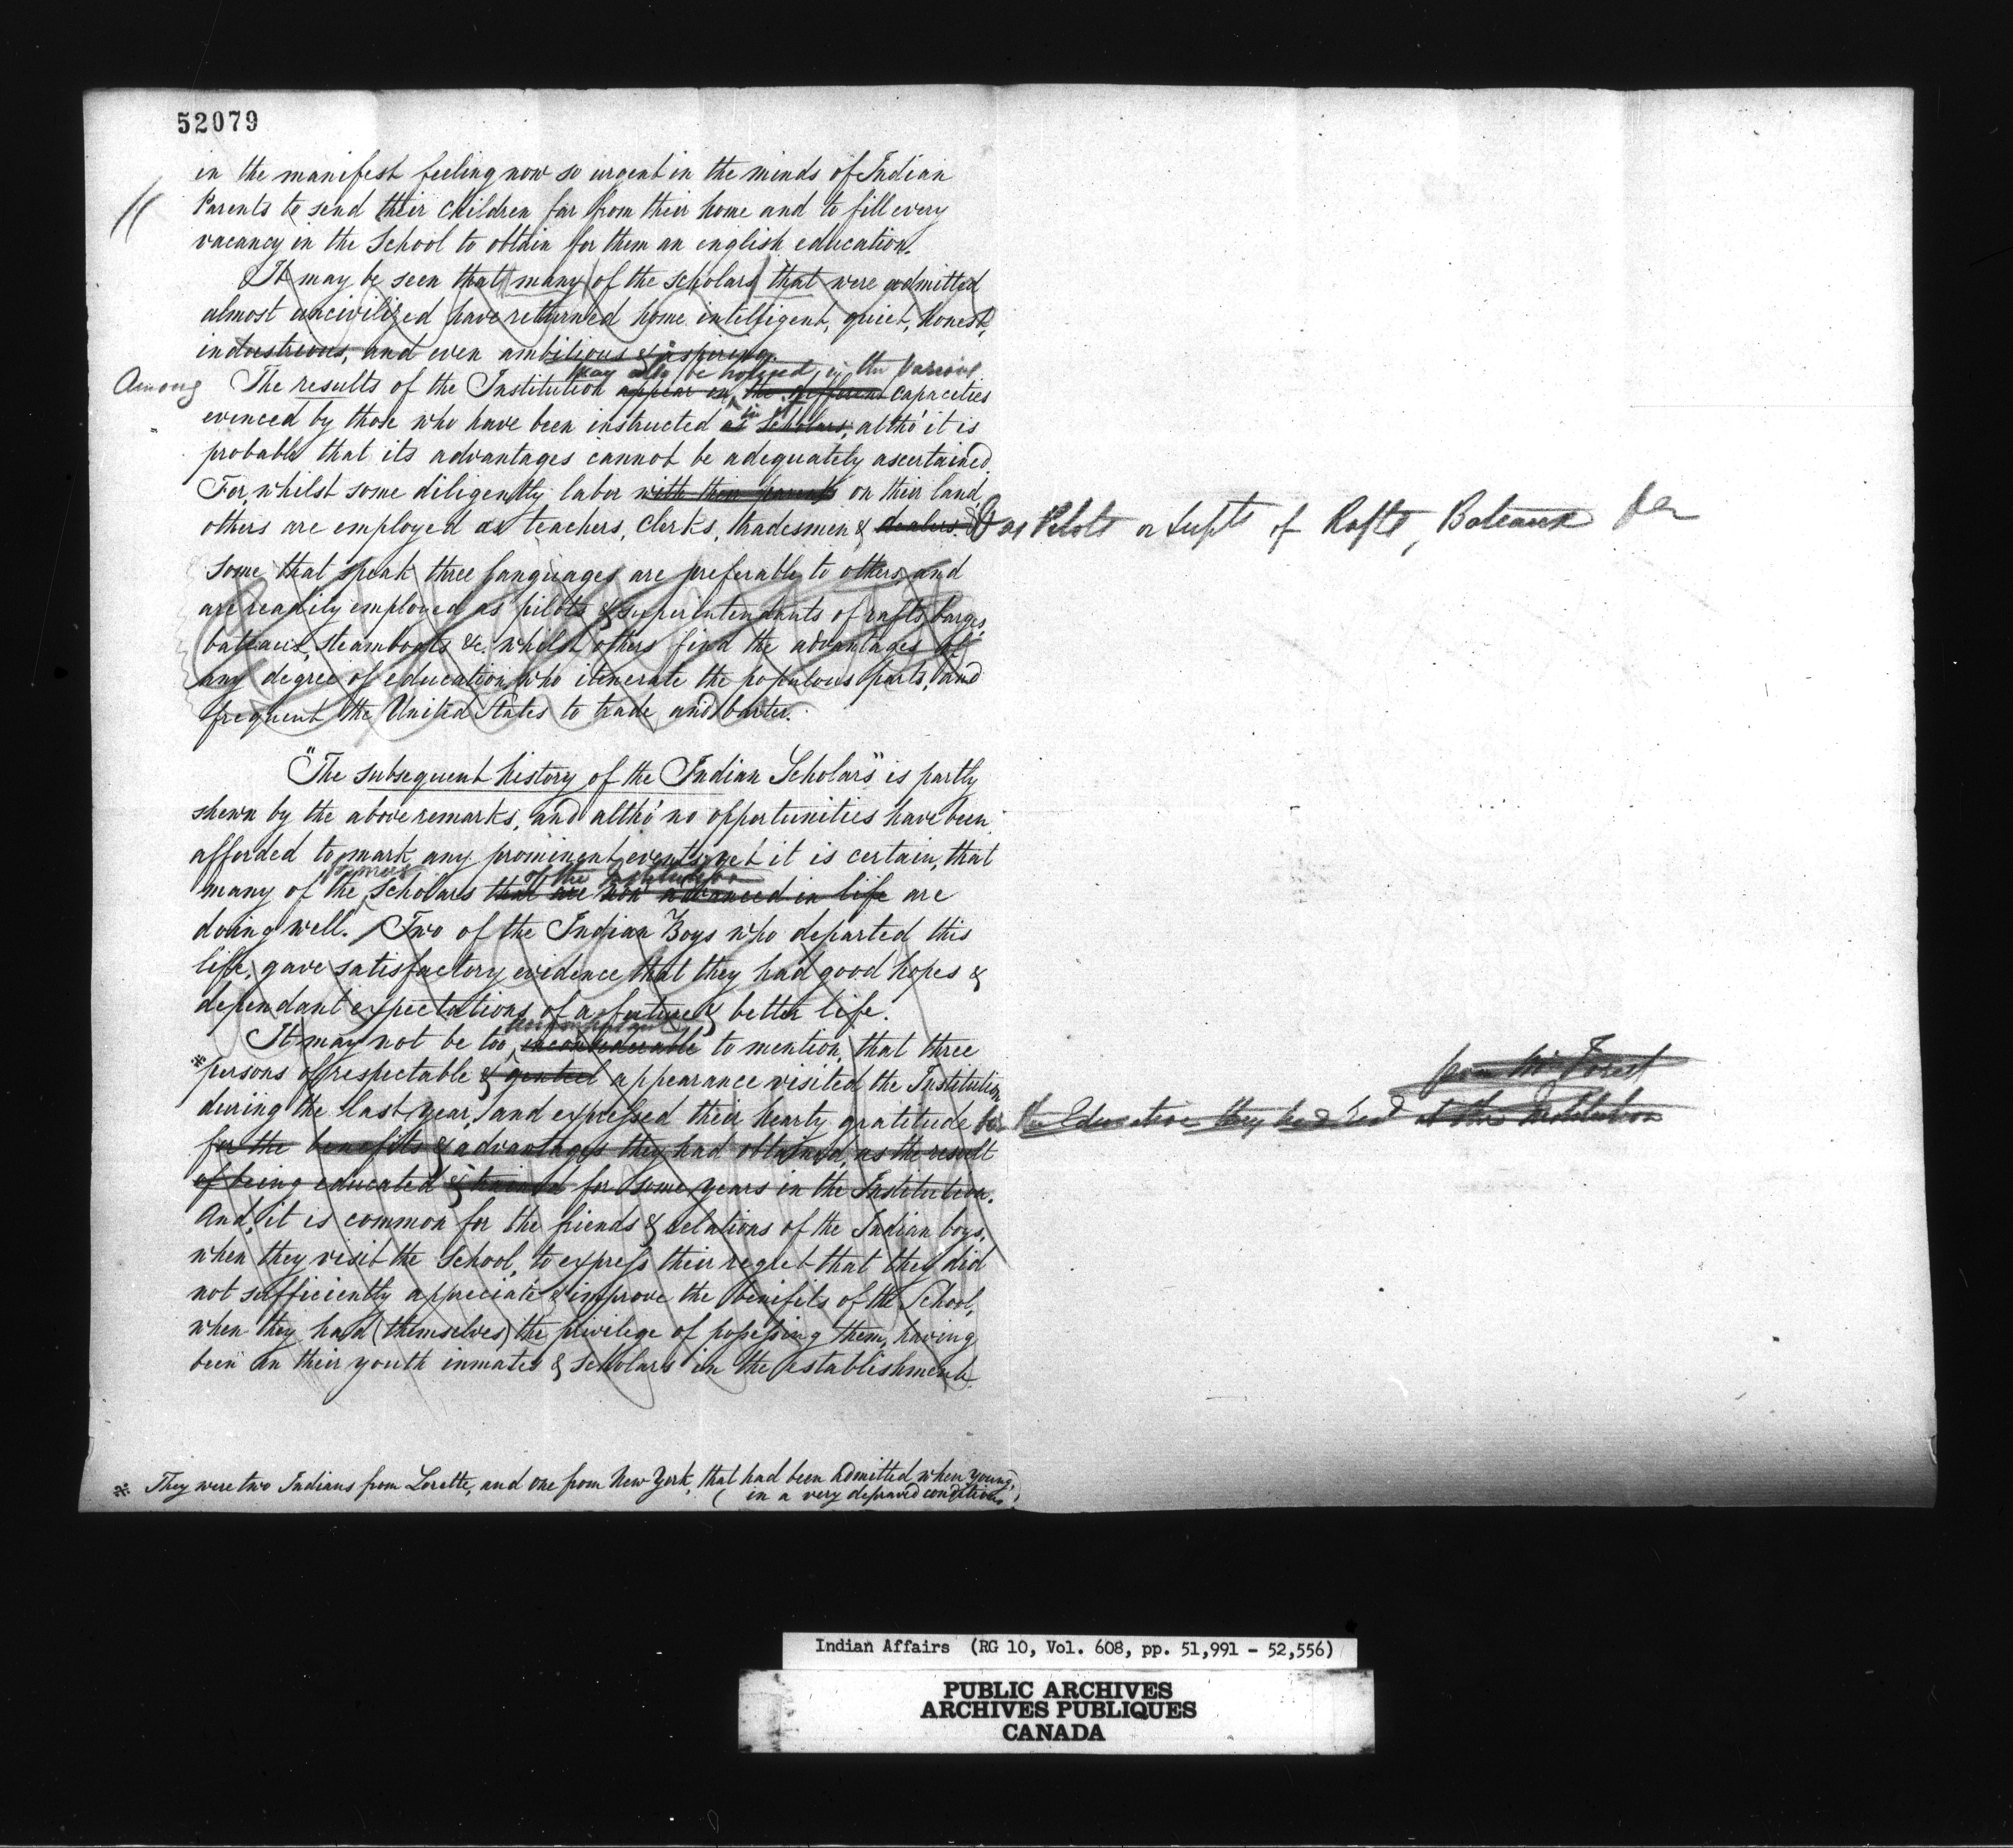 52079
in the manifest feeling now so urgent in the minds of Indian
Parents to send their children far from their home and to fill every
vacancy in the School to obtain for them an english education.
It may be seen that many of the scholars that were admitted
almost uncivilized have returned home intelligent, quiet, honest,
industrious, and even ambitious & aspiring.
may also be noticed, in the various
Among The results of the Institution appear in the different capacities
in it
evinced by those who have been instructed as Scholars, altho' it is
probable that its advantages cannot be adequately ascertained.
For, whilst some diligently labor with their parents on their land,
others are employed as teachers, clerks, tradesmen & dealers. & as Pilots or Supts of Rafts, Bateaux
Some that speak three languages are preferable to others, and
are readily employed as pilots & superintendants of rafts, barges,
bateaux, steamboats &c. whilst others find the advantages of
any degree of education, who itenerate the populous parts, and
frequent the United States to trade and barter.
"The subsequent history of the Indian Scholars" is partly
shewn by the above remarks, and altho' no opportunities have been
afforded to mark any prominent events, yet it is certain, that
former of the Institution
many of the scholars that are now advanced in life are
doing well. Two of the Indian Boys who departed this
life, gave satisfactory evidence that they had good hopes &
dependant expectations of a future & better life.
It may not be too inconsiderable to mention, that three
*persons of respectable & genteel appearance visited the Institution
during the last year, and expressed their hearty gratitude for the Education they had at the Institution
for the benefits & advantages they had obtained, as the result
of being educated & trained for some years in the Institution.
And, it is common for the friends & relations of the Indian boys,
when they visit the School, to express their regret that they did
not sufficiently appreciate & improve the benifits of the School,
when they had (themselves) the privilege of possessing them, having
been in their youth inmates & scholars in the establishment.
* They were two Indians from Lorette, and one from New York, that had been admitted when young,
(in a very depraved condition.)
Indian Affairs (RG 10, Vol. 608, pp. 51,991 - 52,556)
PUBLIC ARCHIVES
ARCHIVES PUBLIQUES
CANADA